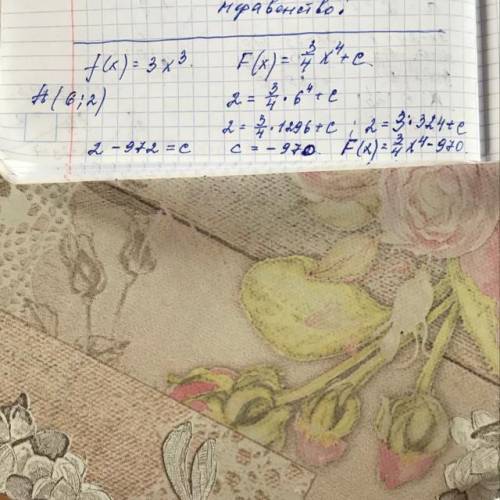 неравенство:
f(x) = 3x³ F(x) = 3/4 x⁴ + c
A(6;2) 2 = 3/4 · 6⁴ + c
2 = 3/4 · 1296 + c ; 2 = 3 · 324 + c
2 - 972 = c c = -970. F(x) = 3/4 x⁴ - 970.